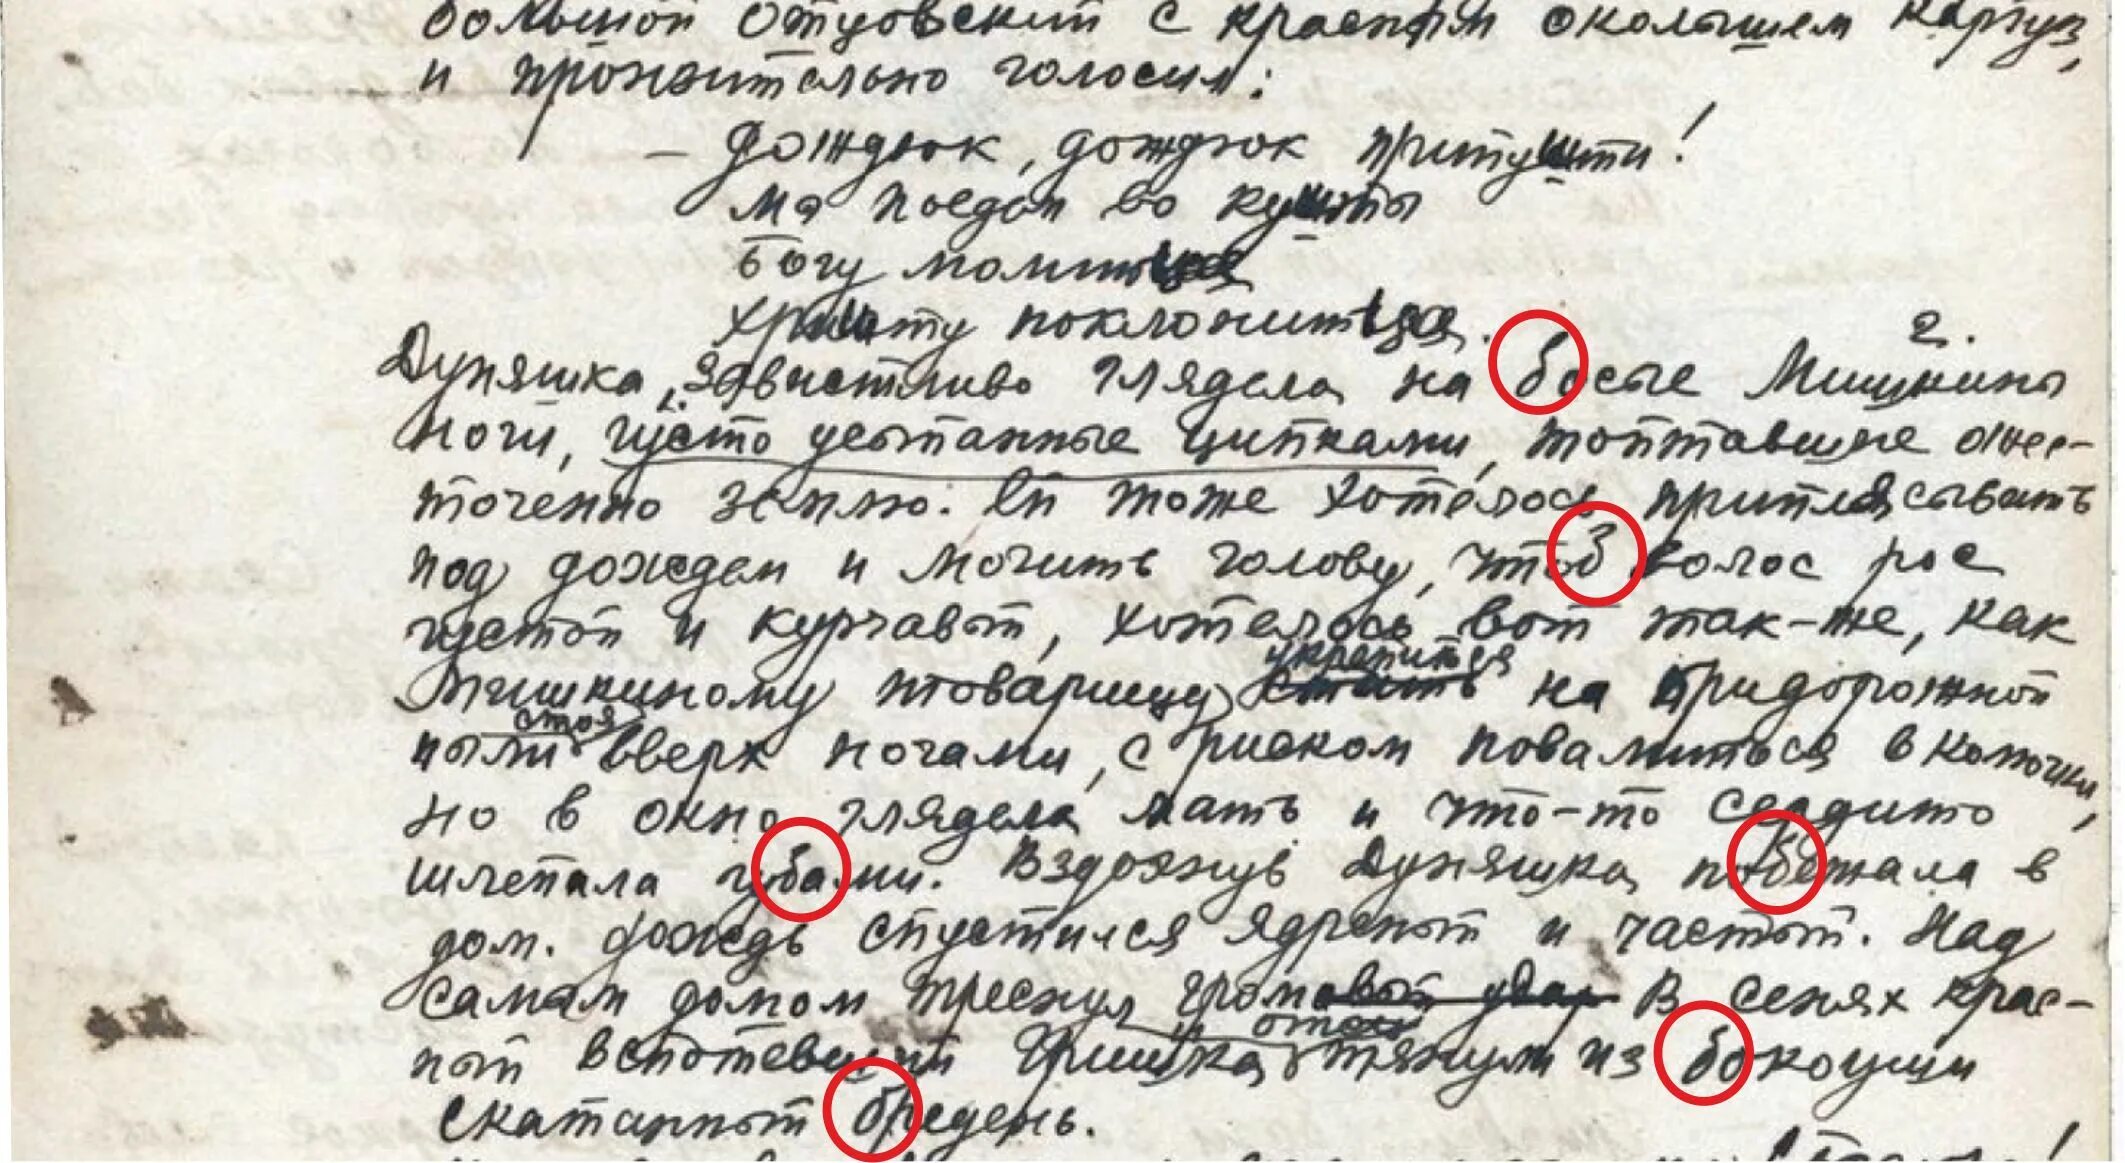 большой отцовский с красным околышем картуз,
и пронзительно голосил:
— Дождюк, дождюк припушти!
Мя поедом во кушты
Богу молитца
Хришту поклонитца.
2.
Дуняшка завистливо глядела на босые Мишкины
ноги, густо усыпанные ципками, топтавшие ожес-
точенно землю. Ей тоже хотелось приплясывать
под дождем и мочить голову, чтоб волос рос
густой и курчавый, хотелось вот так-же, как
Мишкиному товарищу укрепиться на придорожной
стоя
пыли вверх ногами, с риском повалиться в колючки,
но в окно глядела мать и что-то сердито
шлепала губами. Вздохнув Дуняшка побежала в
дом. Дождь спустился ядреный и частый. Над
самым домом треснул гром В сенях крас-
ный вспотевший Гришка тянул из боковуши
скатанный бредень.